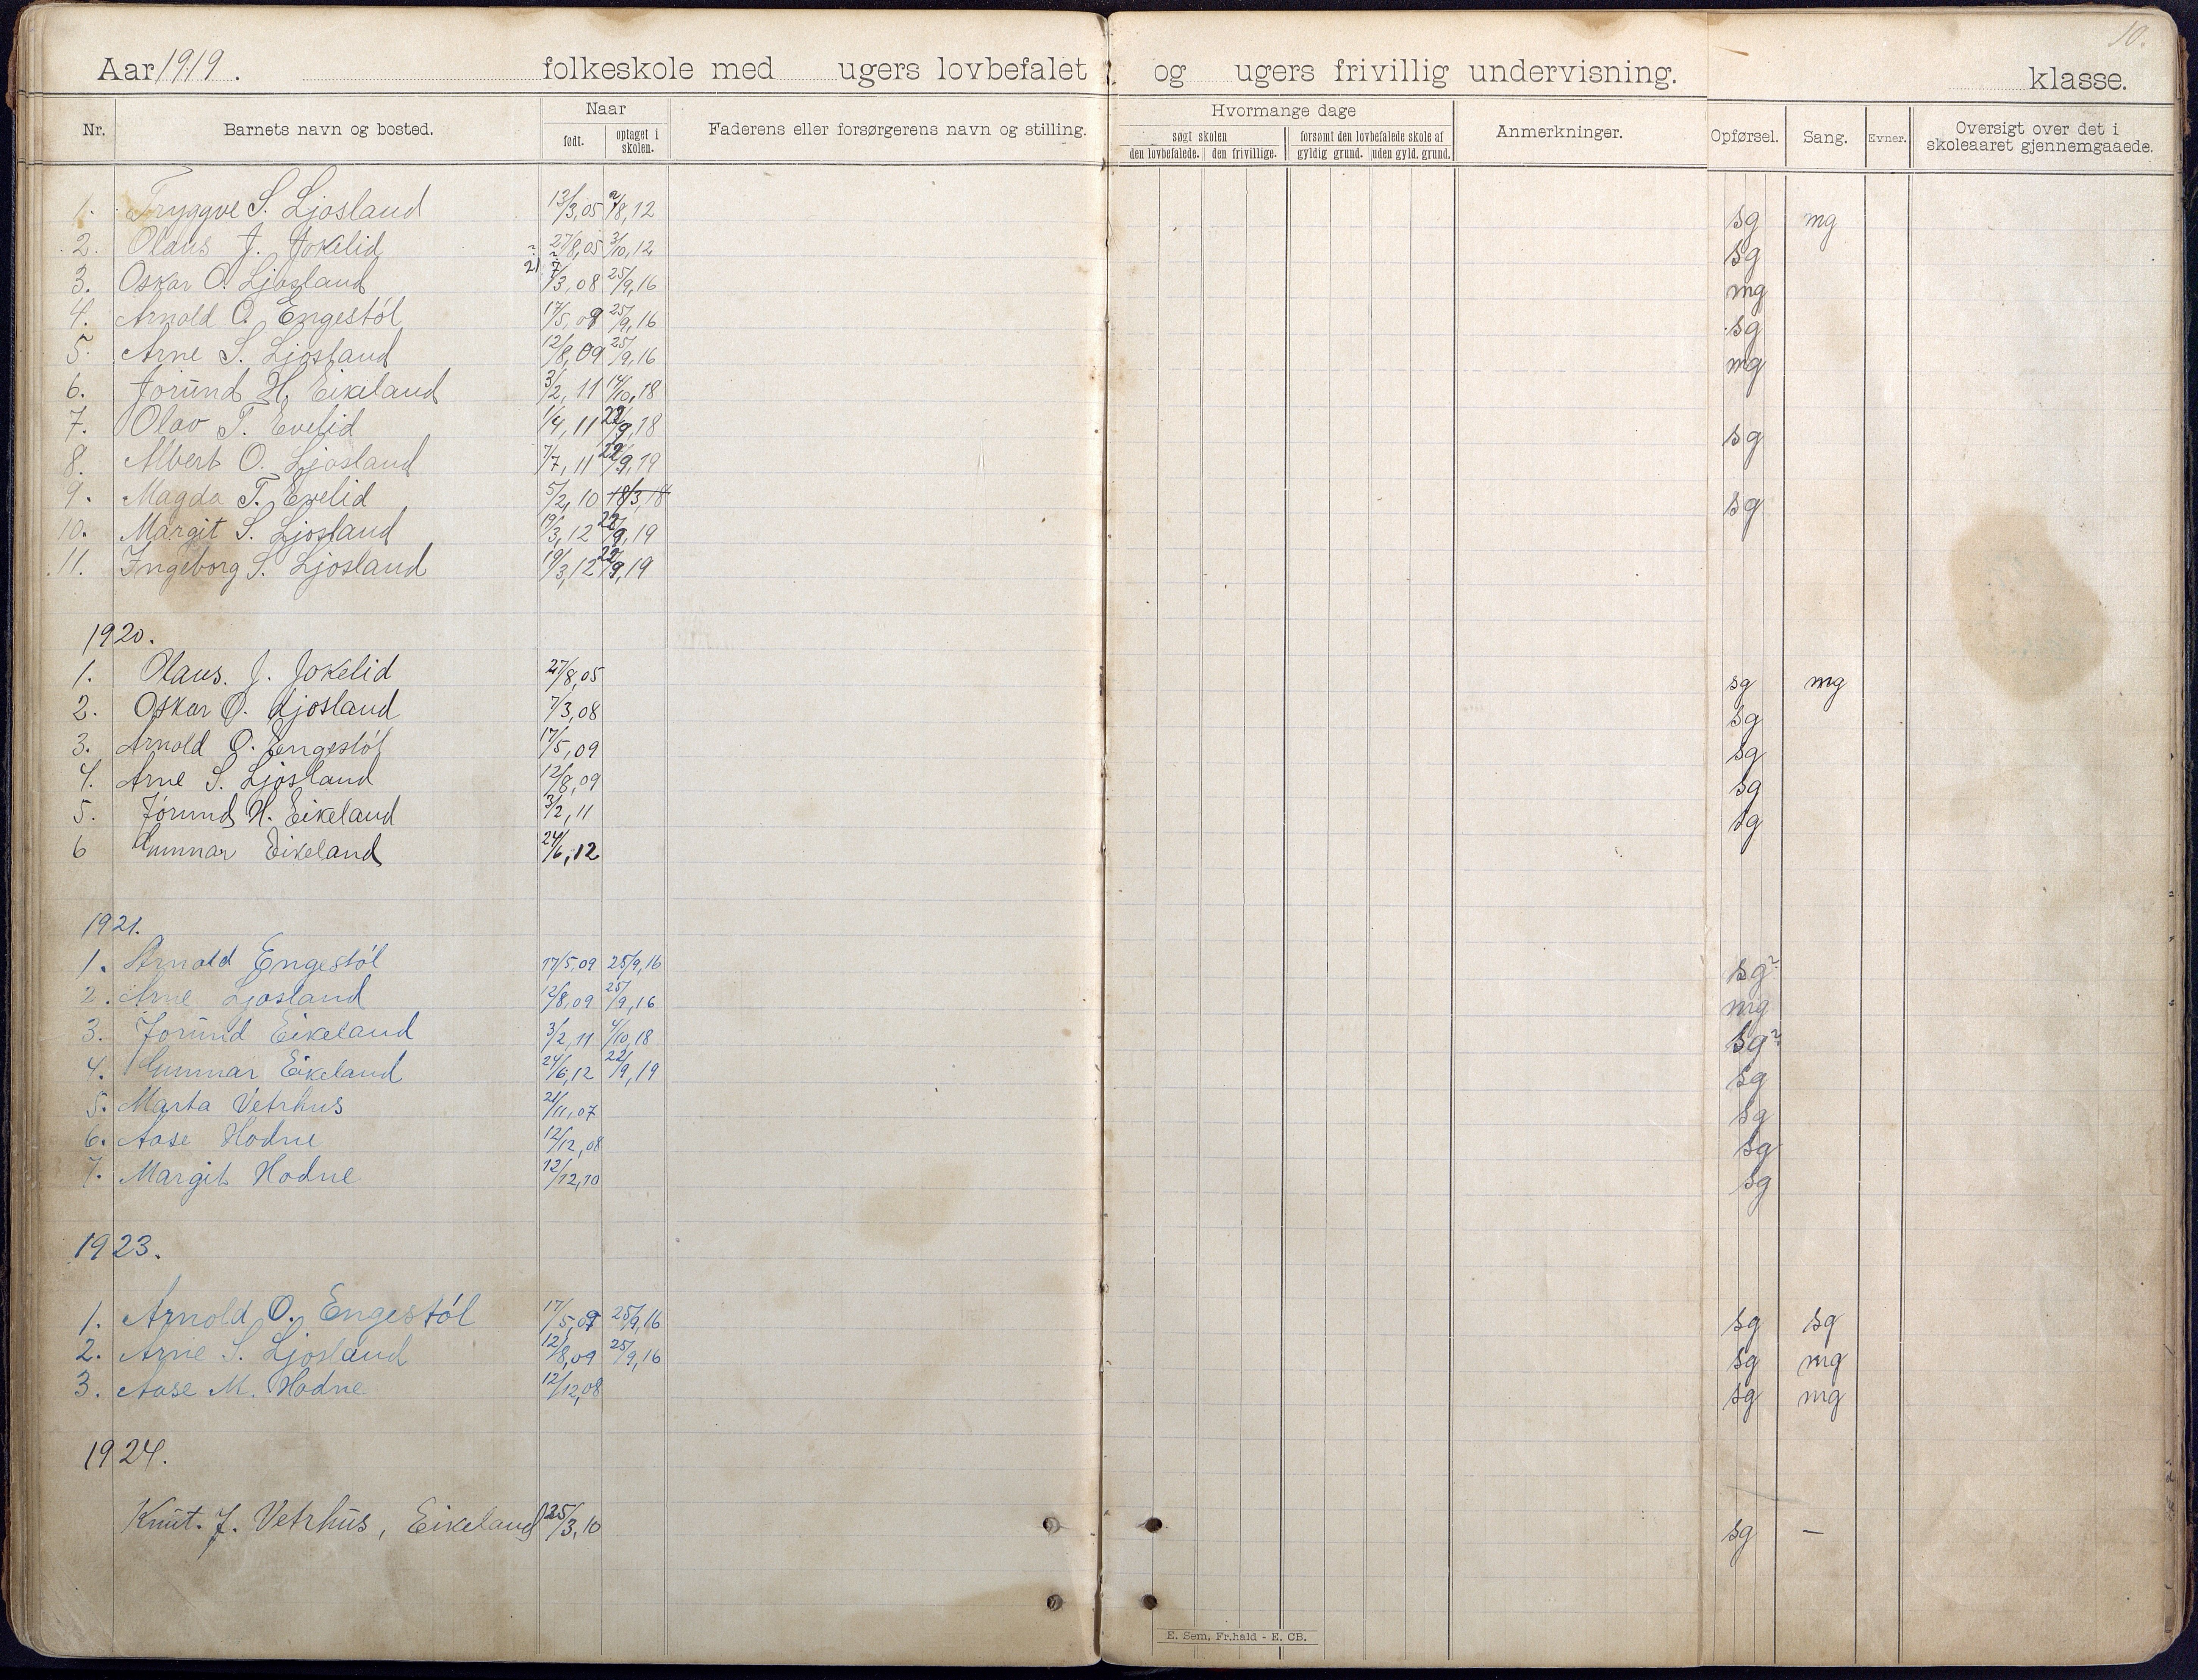 10.
Aar 1919. folkeskole med ugers lovbefalet og ugers frivillig undervisning. klasse.
Nr. Barnets navn og bosted. Naar født. optaget i skolen. Faderens eller forsørgerens navn og stilling. Hvormange dage søgt skolen den lovbefalede. den frivillige. forsømt den lovbefalede skole af gyldig grund. uden gyld. grund. Anmerkninger. Opførsel. Sang. Evner. Oversigt over det i skoleaaret gjennemgaaede.
1. Tryggve S. Ljosland 13/3,05 /8,12 sg mg
2. Olaus J. Jokelid 27/8,05 3/10,12 sg
3. Oskar O. Ljosland 7/3,08 25/9,16 mg
4. Arnold O. Engestöl 17/5,09 25/9,16 sg
5. Arne S. Ljosland 12/8,09 25/9,16 mg
6. Jorund H. Eikeland 3/2,11 14/10,18
7. Olav T. Evelid 1/4,11 /9,18 sg
8. Albert O. Ljosland 7/7,11 22/9,19
9. Magda T. Evelid 5/2,10 18/3,18 sg
10. Margit S. Ljosland 19/3,12 22/9,19
11. Ingeborg S. Ljosland 19/3,12 22/9,19
1920.
1. Olaus. J. Jokelid 27/8,05 sg mg
2. Oskar O. Ljosland 7/3,08 sg
3. Arnold O. Engestöl 17/5,09 sg
4. Arne S. Ljosland 12/8,09 sg
5. Jorund H. Eikeland 3/2,11 sg
6 Gunnar Eikeland 24/6,12
1921.
1. Arnold Engestöl 17/5,09 25/9,16 sg?
2. Arne Ljosland 12/8,09 25/9,16 mg
3. Jorund Eikeland 3/2,11 4/10,18 sg?
4. Gunnar Eikeland 24/6,12 22/9,19 sg
5. Marta Vetrhus 21/11,07 sg
6. Aase Hodne 12/12,08 sg
7. Margit Hodne 12/12,10 sg
1923.
1. Arnold O. Engestöl 17/5,09 25/9,16 sg sg
2. Arne S. Ljosland 12/8,09 25/9,16 sg mg
3. Aase M. Hodne 12/12,08 sg mg
1924.
Knut. J. Vetrhus, Eikeland 25/3,10 sg —
E. Sem, Fr.hald - E. CB.